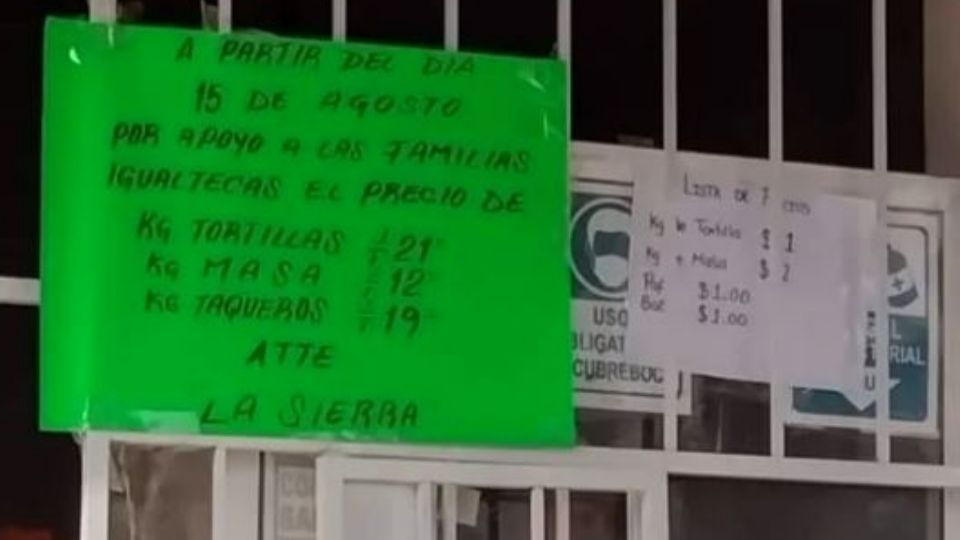 A PARTIR DEL DIA
15 DE AGOSTO
POR APOYO A LAS FAMILIAS
IGUALTECAS EL PRECIO DE
KG TORTILLAS $ 21
KG MASA $ 12
KG TAQUEROS $ 19
ATTE
LA SIERRA
LISTA DE
Kg Tortilla $ 1
Kg Masa $ 2
$1.00
$1.00
USO
BLIGAT
CUBREBOC
L
RIAL
U